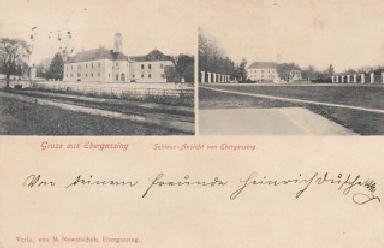 Gruss aus Ebergassing
Schloss-Ansicht von Ebergassing
Von deinem Freunde Heinrich
Verla, von M. Nowotschek, Ebergassing.